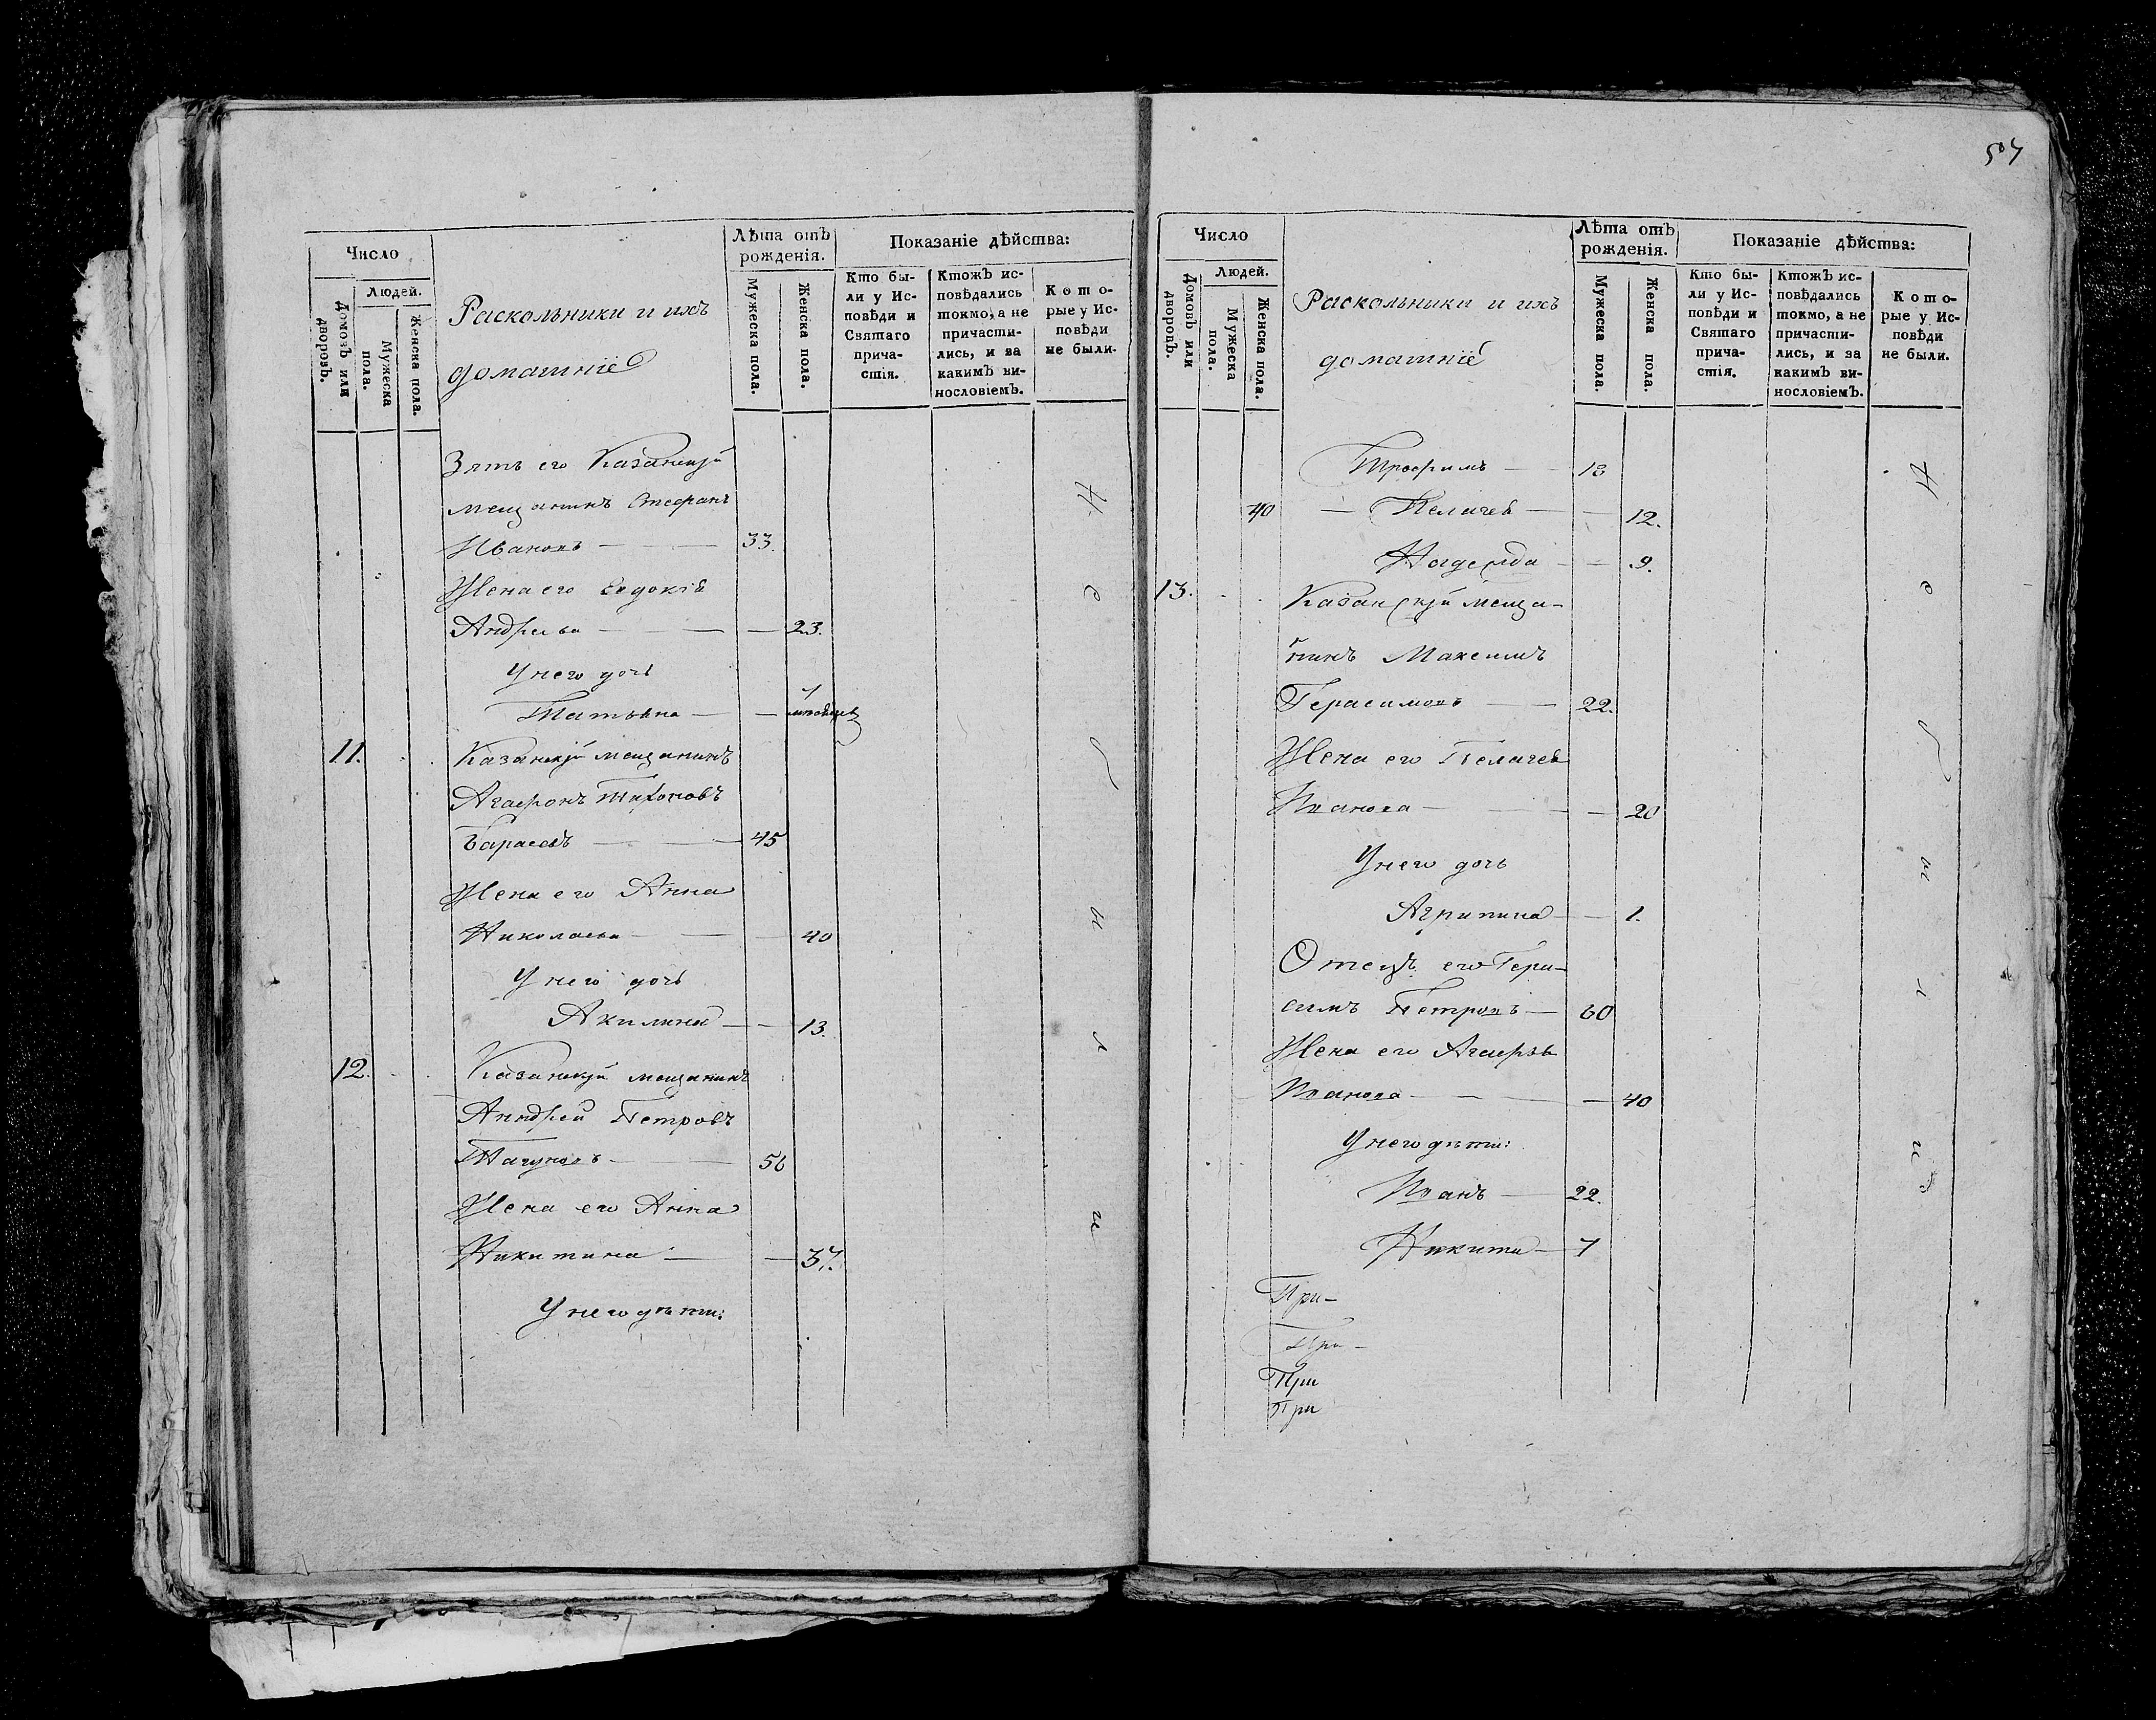 Число
Людей.
Домовъ или дворовъ.
Мужеска пола.
Женска пола.
Раскольники и ихъ
домашніе
Лѣта отъ рожденія.
Мужеска пола.
Женска пола.
Показаніе дѣйства:
Кто бы-
ли у Ис-
повѣди и
Святаго
прича-
стія.
Ктожъ ис-
повѣдались
токмо, а не
причасти-
лись, и за
какимъ ви-
нословіемъ.
Кото-
рые у Ис-
повѣди
не были.
Зять его Казанскій
мещанинъ Стефанъ
Ивановъ — 33.
Жена его Евдокія
Андреева — 23.
У него дочь
Татьяна — 7
11. Казанскій мещанинъ
Агафонъ Тихоновъ
45
Жена его Анна
Николаева — 40
У него дочь
Акилина — 13.
12. Казанскій мещанинъ
Андрей Петровъ
56
Жена его Анна
Никитина — 37.
У него дѣти:
Не были
57
Число
Людей.
Домовъ или дворовъ.
Мужеска пола.
Женска пола.
Раскольники и ихъ
домашніе
Лѣта отъ рожденія.
Мужеска пола.
Женска пола.
Показаніе дѣйства:
Кто бы-
ли у Ис-
повѣди и
Святаго
прича-
стія.
Ктожъ ис-
повѣдались
токмо, а не
причасти-
лись, и за
какимъ ви-
нословіемъ.
Кото-
рые у Ис-
повѣди
не были.
Трофимъ — 18
40 — Пелагея — 12.
Надежда — 9.
13. Казанскій меща-
нинъ Максимъ
Герасимовъ — 22.
Жена его Пелагея
Иванова — 20
У него дочь
Агрипина — 1.
Отецъ его Гера-
симъ Петровъ — 60
Жена его Агафья
Иванова — 40
У него дѣти:
Иванъ — 22.
Никита — 7
При-
При-
При
При
Не были